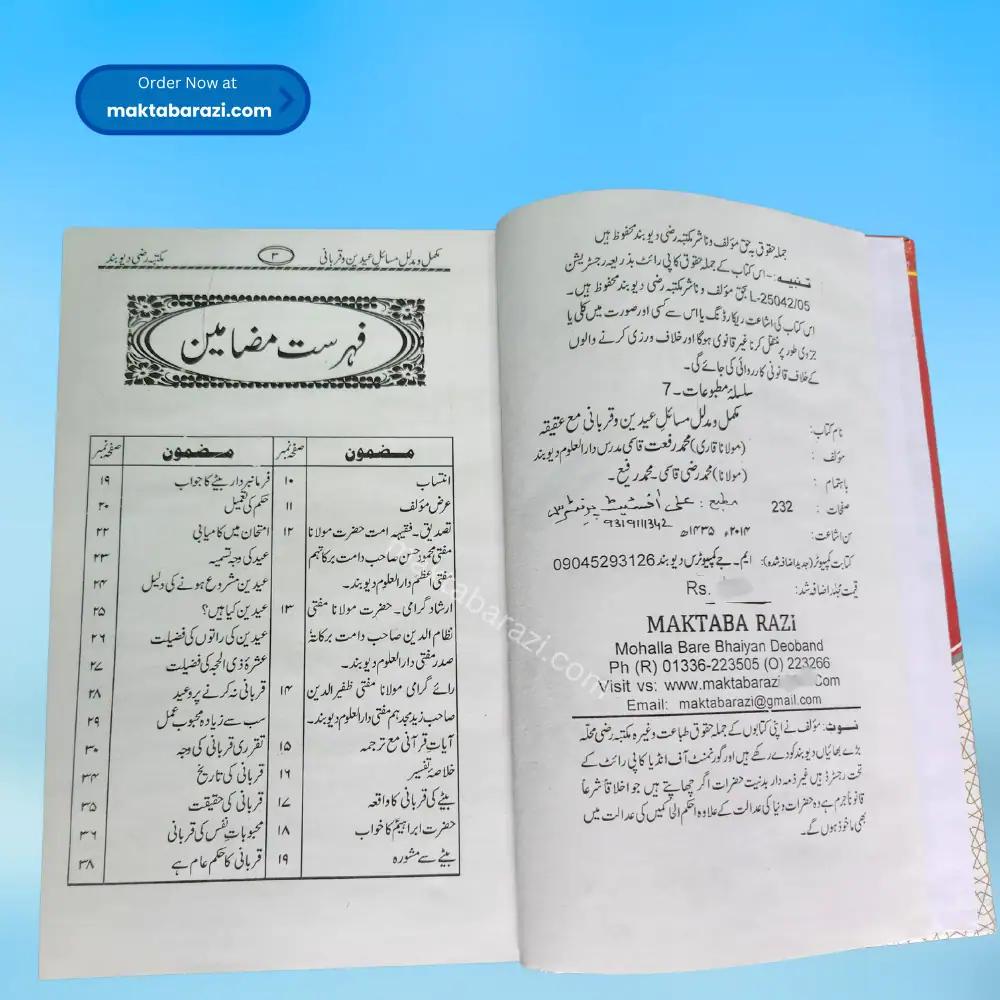 Order Now at
maktabarazi.com
جملہ حقوق بہ حق مؤلف و ناشر مکتبہ رضی دیوبند محفوظ ہیں
تنبیہ:- اس کتاب کے جملہ حقوق کاپی رائٹ بذریعہ رجسٹریشن
L-25042/05 بحق مؤلف و ناشر مکتبہ رضی دیوبند محفوظ ہیں۔
اس کتاب کی اشاعت ریکارڈنگ یا اس سے کسی اور صورت میں کلی یا
جزوی طور پر منتقل کرنا غیر قانونی ہوگا اور خلاف ورزی کرنے والوں
کے خلاف قانونی کارروائی کی جائے گی۔
سلسلۂ مطبوعات۔ 7
نام کتاب: مکمل و مدلل مسائل عیدین و قربانی مع عقیقہ
مؤلف : (مولانا قاری) محمد رفعت قاسمی مدرس دارالعلوم دیوبند
باہتمام : (مولانا) محمد رضی قاسمی۔ محمد رفیع۔
صفحات : 232 مطبع: علی آفسیٹ پرنٹرس
۹۳۱۹۱۱۱۳۴۲
سن اشاعت: ۲۰۱۴ء ۱۴۳۵ھ
کتابت کمپیوٹر (جدید اضافہ شدہ): ایم۔ جے کمپیوٹرس دیوبند 09045293126
قیمت مجلد اضافہ شدہ: Rs.
MAKTABA RAZi
Mohalla Bare Bhaiyan Deoband
Ph (R) 01336-223505 (O) 223266
Visit vs: www.maktabarazi Com
Email: maktabarazi@gmail.com
نوٹ: مؤلف نے اپنی کتابوں کے جملہ حقوق طباعت وغیرہ مکتبہ رضی محلہ
بڑے بھائیاں دیوبند کو دے رکھے ہیں اور گورنمنٹ آف انڈیا کاپی رائٹ کے
تحت رجسٹرڈ ہیں غیر ذمہ دار بد نیت حضرات اگر چھاپتے ہیں جو اخلاقاً شرعاً
قانوناً جرم ہے وہ حضرات دنیا کی عدالت کے علاوہ احکم الحاکمین کی عدالت میں
بھی ماخوذ ہوں گے۔
مکمل و مدلل مسائل عیدین و قربانی ۳ مکتبہ رضی دیوبند
فہرست مضامین
مضمون صفحہ نمبر مضمون صفحہ نمبر
انتساب ۱۰ فرمانبردار بیٹے کا جواب ۱۹
عرض مؤلف ۱۱ حکم کی تعمیل ۲۰
تصدیق۔ فقیہہ امت حضرت مولانا ۱۲ امتحان میں کامیابی ۲۲
مفتی محمود حسن صاحب دامت برکاتہم عید کی وجہ تسمیہ ۲۳
مفتی اعظم دارالعلوم دیوبند۔ عیدین مشروع ہونے کی دلیل ۲۴
ارشاد گرامی۔ حضرت مولانا مفتی ۱۳ عیدین کیا ہیں؟ ۲۵
نظام الدین صاحب دامت برکاتہ عیدین کی راتوں کی فضیلت ۲۶
صدر مفتی دارالعلوم دیوبند۔ عشرۂ ذی الحجہ کی فضیلت ۲۷
رائے گرامی مولانا مفتی ظفیر الدین ۱۴ قربانی نہ کرنے پر وعید ۲۸
صاحب زید مجدہم مفتی دارالعلوم دیوبند۔ سب سے زیادہ محبوب عمل ۲۹
آیات قرآنی مع ترجمہ ۱۵ تقرری قربانی کی وجہ ۳۰
خلاصۂ تفسیر ۱۶ قربانی کی تاریخ ۳۴
بیٹے کی قربانی کا واقعہ ۱۷ قربانی کی حقیقت ۳۵
حضرت ابراہیمؑ کا خواب ۱۸ محبوبات نفس کی قربانی ۳۶
بیٹے سے مشورہ ۱۹ قربانی کا حکم عام ہے ۳۸
maktabarazi.com